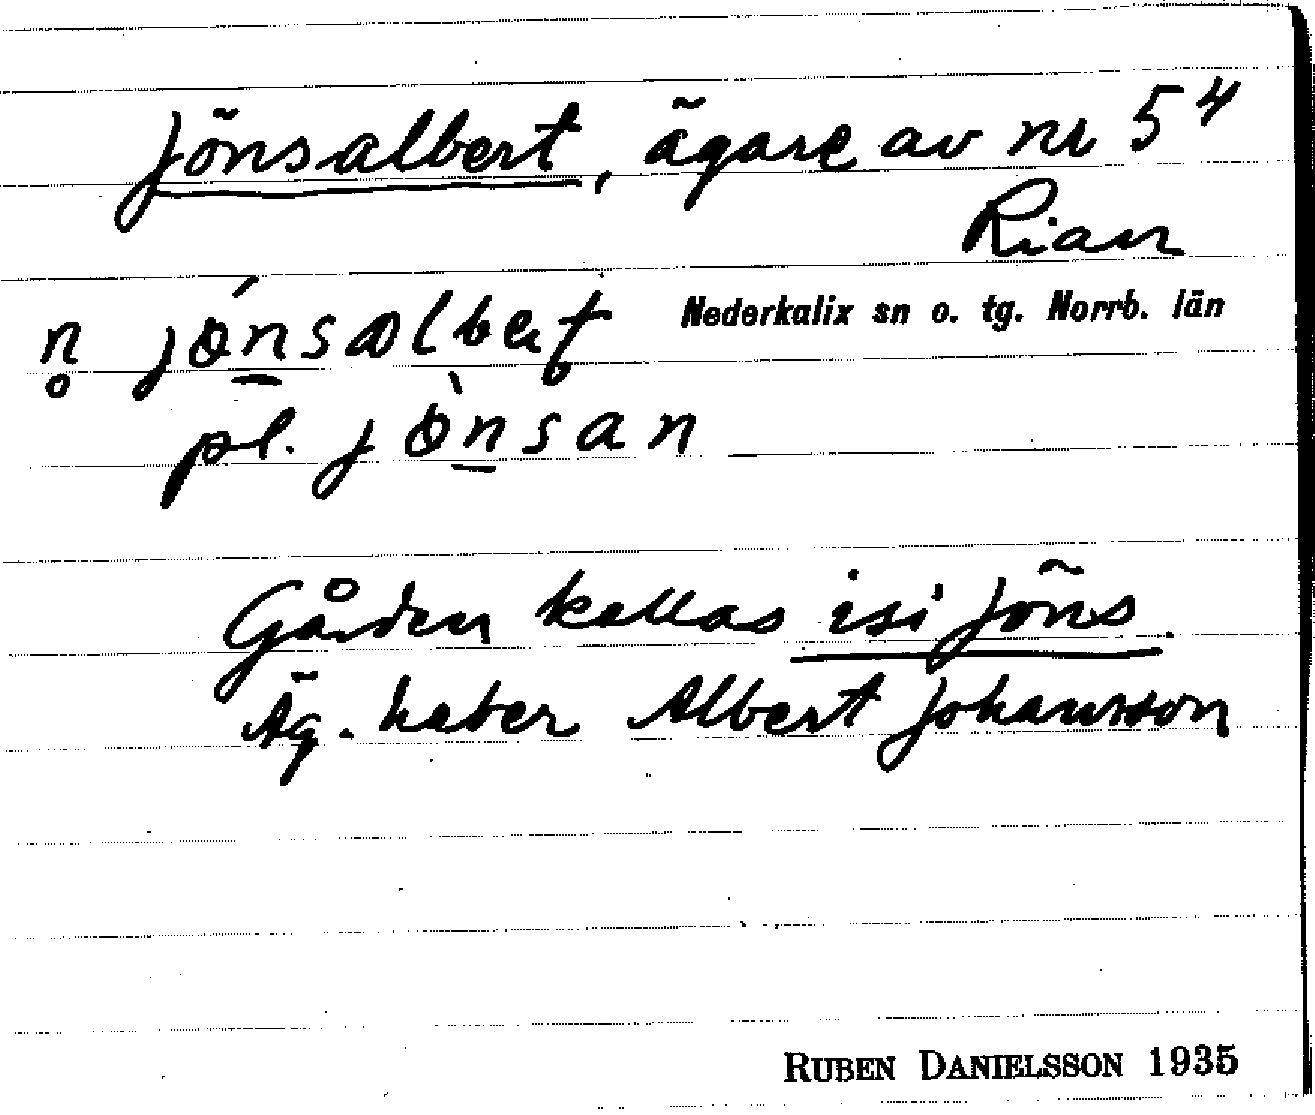 Jönsalbert, ägare av nr 5⁴
Rian
Nederkalix sn o. tg. Norrb. län
n̥ jǿn̲salbert
pl. jòn̲san
Gården kallas isi Jöns.
Äg. heter Albert Johansson
RUBEN DANIELSSON 1935